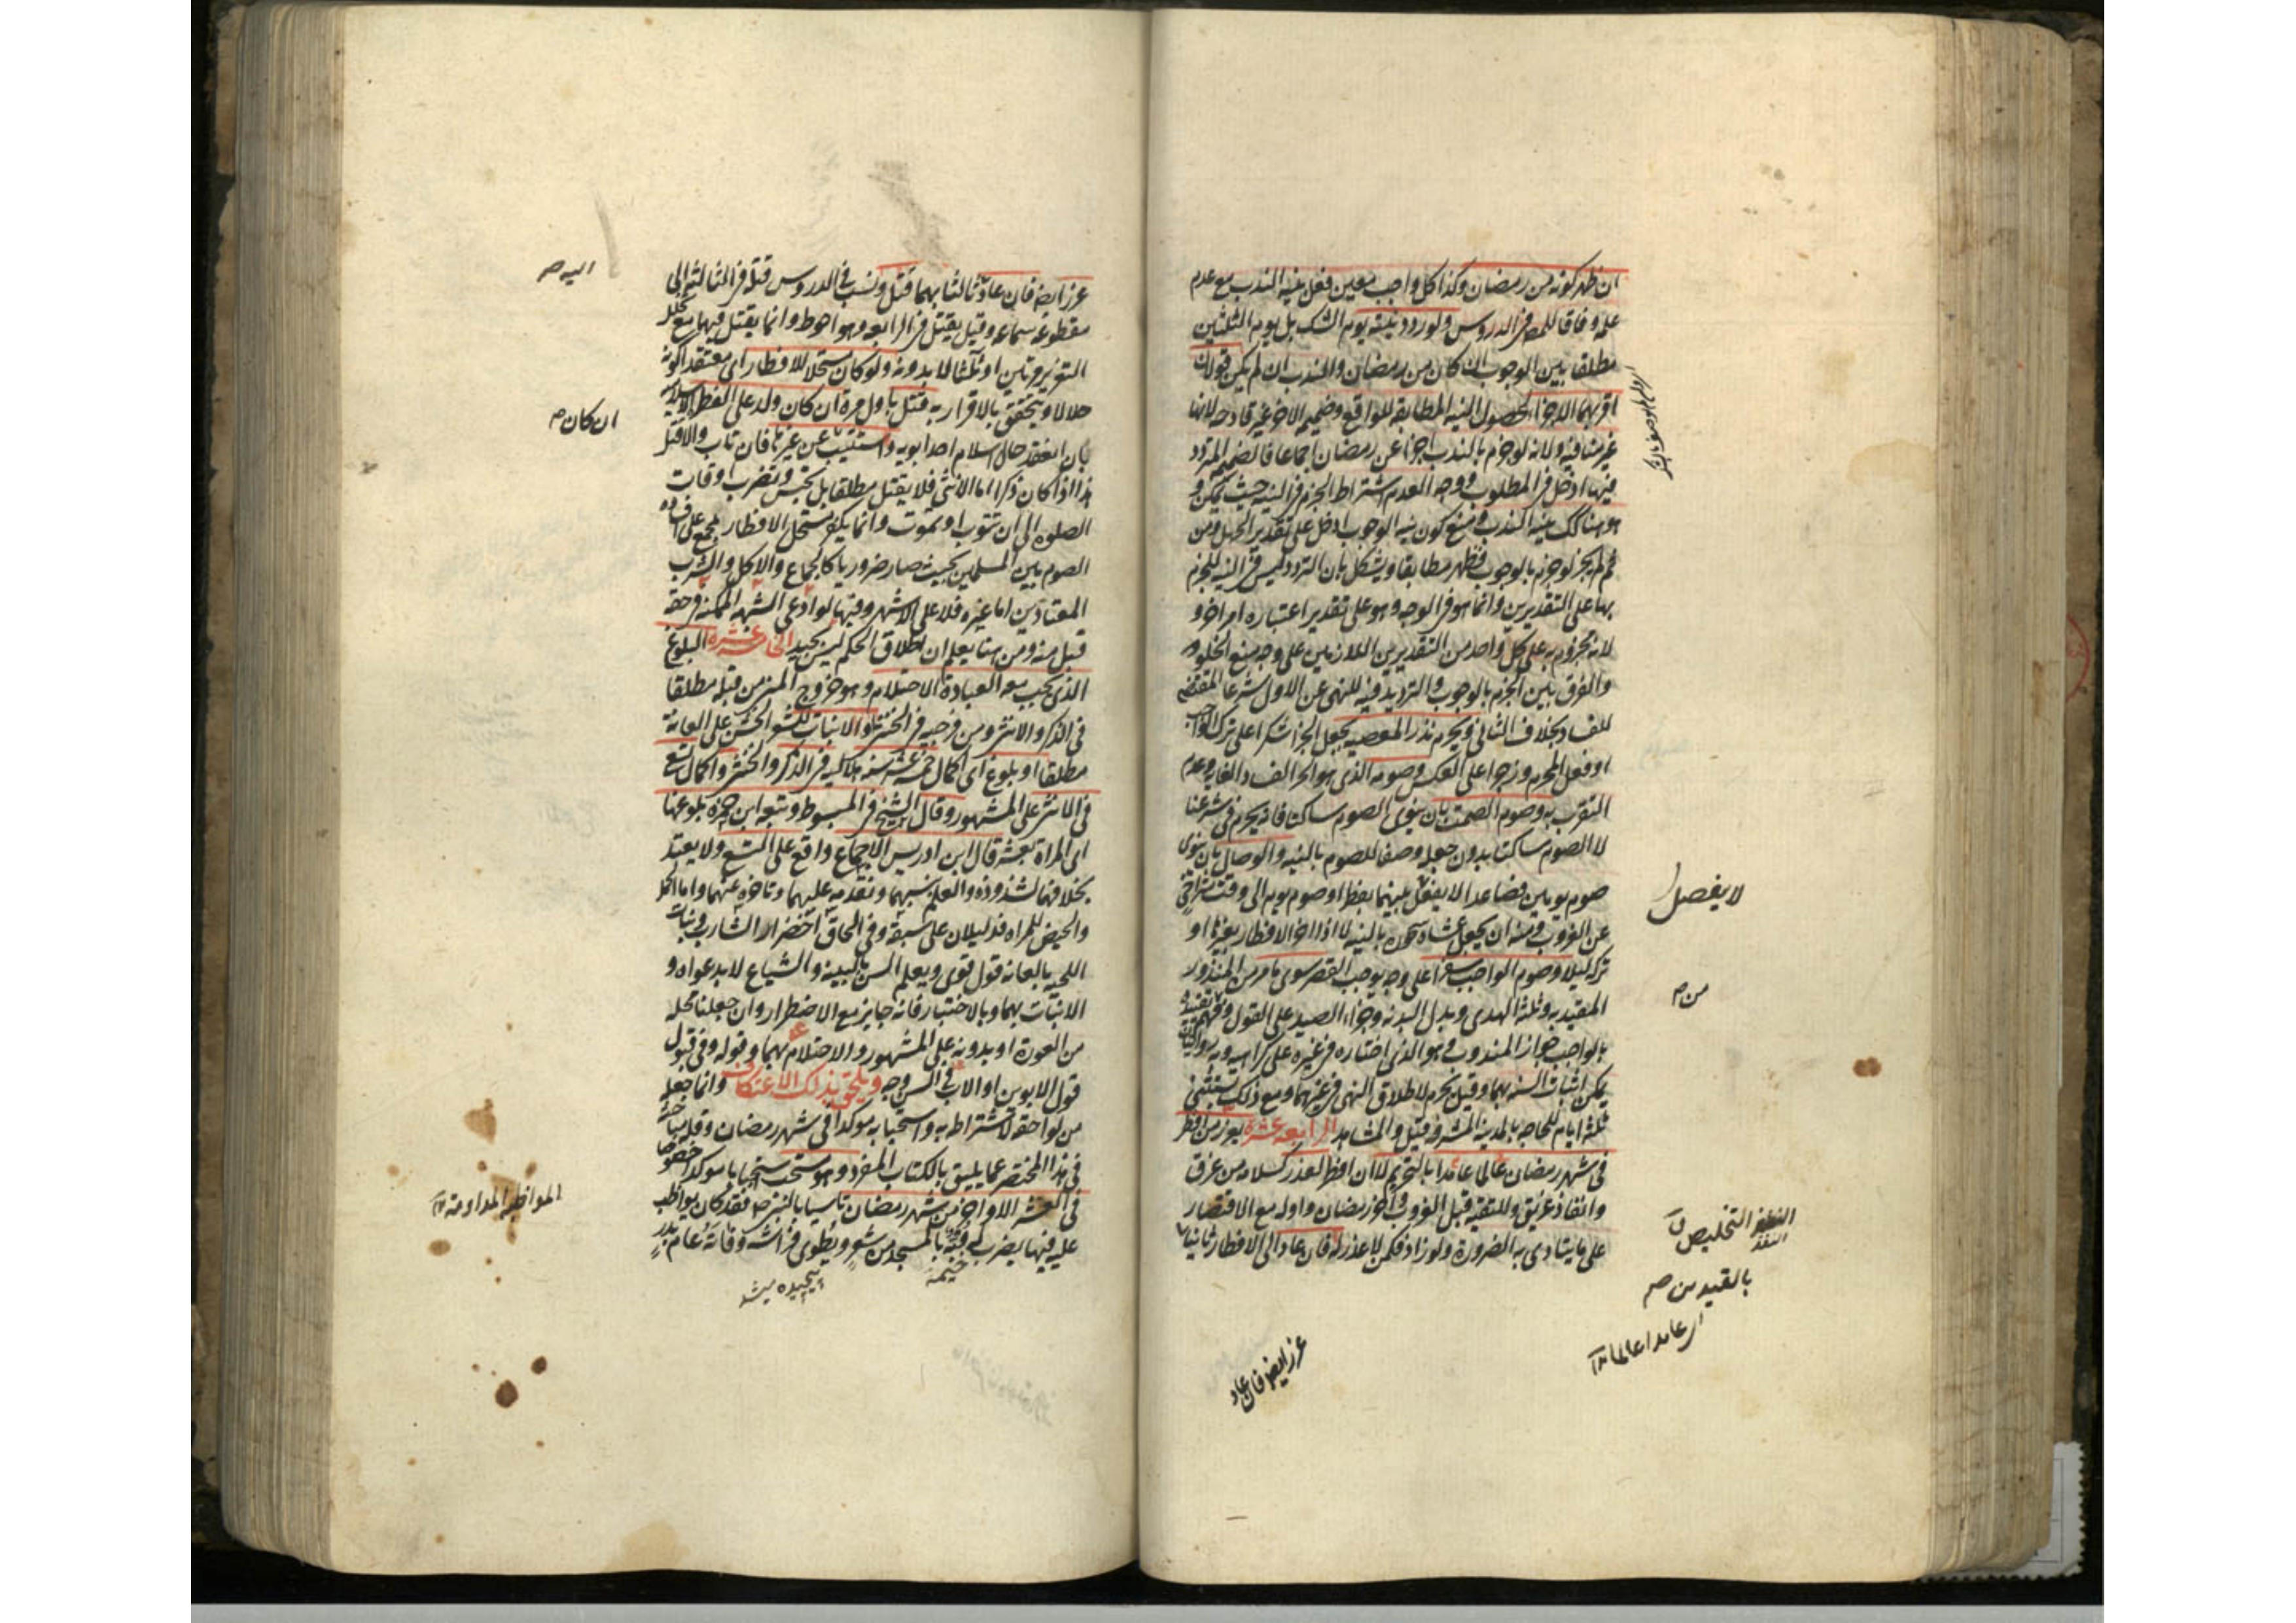 ان ظهر كونه من رمضان وكذا كل واجب معين فعل بنية الندب مع عدم
علمه وفاقا للمص في الدروس ولو ردد نيته يوم الشك بل يوم الثلثين
مطلقا بين الوجوب ان كان من رمضان والندب ان لم يكن فقولان
اقربهما الاجزاء لحصول النيه المطابقه للواقع وضميمه الاخر غير قادحه لانها
غير منافيه ولانه لو جزم بالندب اجزا عن رمضان اجماعا فالضميمه المتردد
فيها ادخل في المطلوب ووجه العدم اشتراط الجزم في النيه حيث يمكن و
هو هنا كك بنيه الندب ومنع كون نيه الوجوب ادخل على تقدير الجهل ومن
ثم لم يجز لو جزم بالوجوب فظهر مطابقا ويشكل بان التردد ليس في النيه للجزم
بها على التقديرين وانما هو في الوجه وهو على تقدير اعتباره امر اخر و
لانه مجزوم به على كل واحد من التقديرين اللازمين على وجه منع الخلو
والفرق بين الجزم بالوجوب والترديد فيه للنهى عن الاول شرعا المقتضى
للفساد بخلاف الثانى ويحرم نذر المعصيه بجعل الجزا شكرا على ترك الواجب
او فعل المحرم وزجرا على العكس وصومه الذى هو الجزا لفساد الغايه وعدم
التقرب به وصوم الصمت بان ينوى الصوم ساكتا فانه يحرم فى شرعنا
لا الصوم ساكتا بدون جعله وصفا للصوم بالنيه والوصال بان ينوى
صوم يومين فصاعدا لا يفصل بينهما بفطر او صوم يوم الى وقت متراخ
عن الغروب ومنه ان يجعل عشاه سحوره بالنيه لا اذا اخر الافطار بغيرها او
تركه ليلا وصوم الواجب سفرا على وجه يوجب القصر سوى ما مر من المنذور
المقيد به وثلثه الهدى وبدل البدنه وجزاء الصيد على القول وفهم من تقييده
بالواجب جواز المندوب وهو الذى اختاره فى غيره على كراهيه وبه روايتان
يمكن اثبات السنه بهما وقيل يحرم لاطلاق النهى فى غيرهما ومع ذلك يستثنى
ثلثه ايام للحاجه بالمدينه المشرفه قيل والمشاهد الرابعه عشره يعزر من افطر
فى شهر رمضان عالما عامدا بالتحريم لا ان افطر لعذر كسلامه من غرق
وانقاذ غريق وللتقيه قبل الغروب واخر رمضان واوله مع الاقتصار
على ما يتادى به الضروره ولو زاد فكمن لا عذر له فان عاد الى الافطار ثانيا
لا يفصل
من ص
التخليص ق
بالقيد من ص
اى عامدا عالما
عزر ايضا فان عاد
عزر ايضا فان عاد ثالثا بهما قتل ونسب فى الدروس قتله فى الثالثه الى
مقطوعه سماعه وقيل يقتل فى الرابعه وهو احوط وانما يقتل فيهما مع تخلل
التعزير مرتين او ثلثا لا بدونه ولو كان مستحلا للافطار اى معتقدا كونه
حلالا ويتحقق بالاقرار به قتل باول مره ان كان ولد على الفطره الاسلاميه
بان انعقد حال اسلام احد ابويه واستتيب عن غيرها فان تاب والا قتل
هذا اذا كان ذكرا اما الانثى فلا يقتل مطلقا بل تحبس وتضرب اوقات
الصلوه الى ان تتوب او تموت وانما يكفر مستحل الافطار بمجمع على افساده
الصوم بين المسلمين بحيث صار ضروريا كالجماع والاكل والشرب
المعتادين اما غيره فلا على الاشهر وفيها لو ادعى الشبهه الممكنه فى حقه
قبل منه ومن هنا يعلم ان اطلاق الحكم ليس بجيد الخامسه عشره البلوغ
الذى يجب معه العباده الاحتلام وهو خروج المنى من قبله مطلقا
فى الذكر والانثى ومن فرجيه فى الخنثى او الانبات للشعر الخشن على العانه
مطلقا او بلوغ اى اكمال خمس عشره سنه هلاليه فى الذكر والخنثى واكمال تسع
فى الانثى على المشهور وقال الشيخ فى المبسوط وتبعه ابن حمزه بلوغها
اى المراه بعشر قال ابن ادريس الاجماع واقع على التسع ولا يعتد
بخلافهما لشذوذه والعلم بنسبهما وتقدمه عليهما وتاخره عنهما واما الحمل
والحيض للمراه فدليلان على سبقه وفى الحاق اخضرار الشارب ونبات
اللحيه بالعانه قول قوى ويعلم السن بالبينه والشياع لا بدعواه و
الانبات بهما وبالاختبار فانه جايز مع الاضطرار وان جعلنا محله
من العوره او بدونه على المشهور والاحتلام بهما وقوله وفى قبول
قول الابوين او الاب فى السن وجه ويلحق بذلك الاعتكاف وانما جعله
من لواحقه لاشتراطه به واستحبابه موكدا فى شهر رمضان وقله مباحثه
فى هذا المختصر عما يليق بالكتاب المفرد وهو مستحب استحبابا موكدا خصوصا
فى العشر الاواخر من شهر رمضان تاسيا بالنبى ص فقد كان يواظب
عليه فيها يضرب له قبه بالمسجد من شعر ويطوى فراشه وفاته عام بدر
خيمه
پيچيده ميشد
اليه ص
ان كان ص
المواظبه المداومه